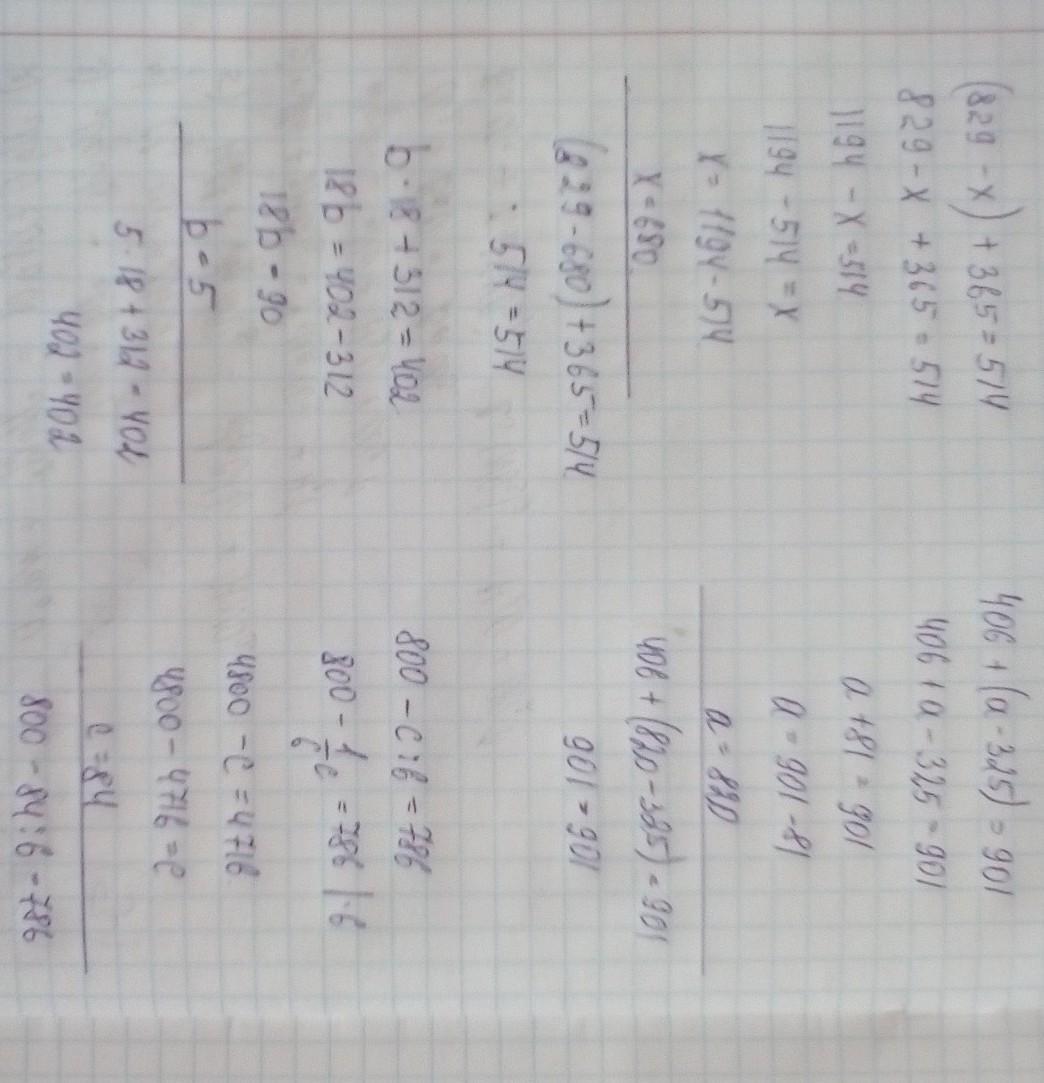 (829 - x) + 365 = 514
829 - x + 365 = 514
1194 - x = 514
1194 - 514 = x
x = 1194 - 514
x = 680
(829 - 680) + 365 = 514
514 = 514
b · 18 + 312 = 402
18b = 402 - 312
18b = 90
b = 5
5 · 18 + 312 = 402
402 = 402
406 + (a - 325) = 901
406 + a - 325 = 901
a + 81 = 901
a = 901 - 81
a = 820
406 + (820 - 325) = 901
901 = 901
800 - c : 6 = 786
800 - 1/6 c = 786 | · 6
4800 - c = 4716
4800 - 4716 = c
c = 84
800 - 84 : 6 = 786